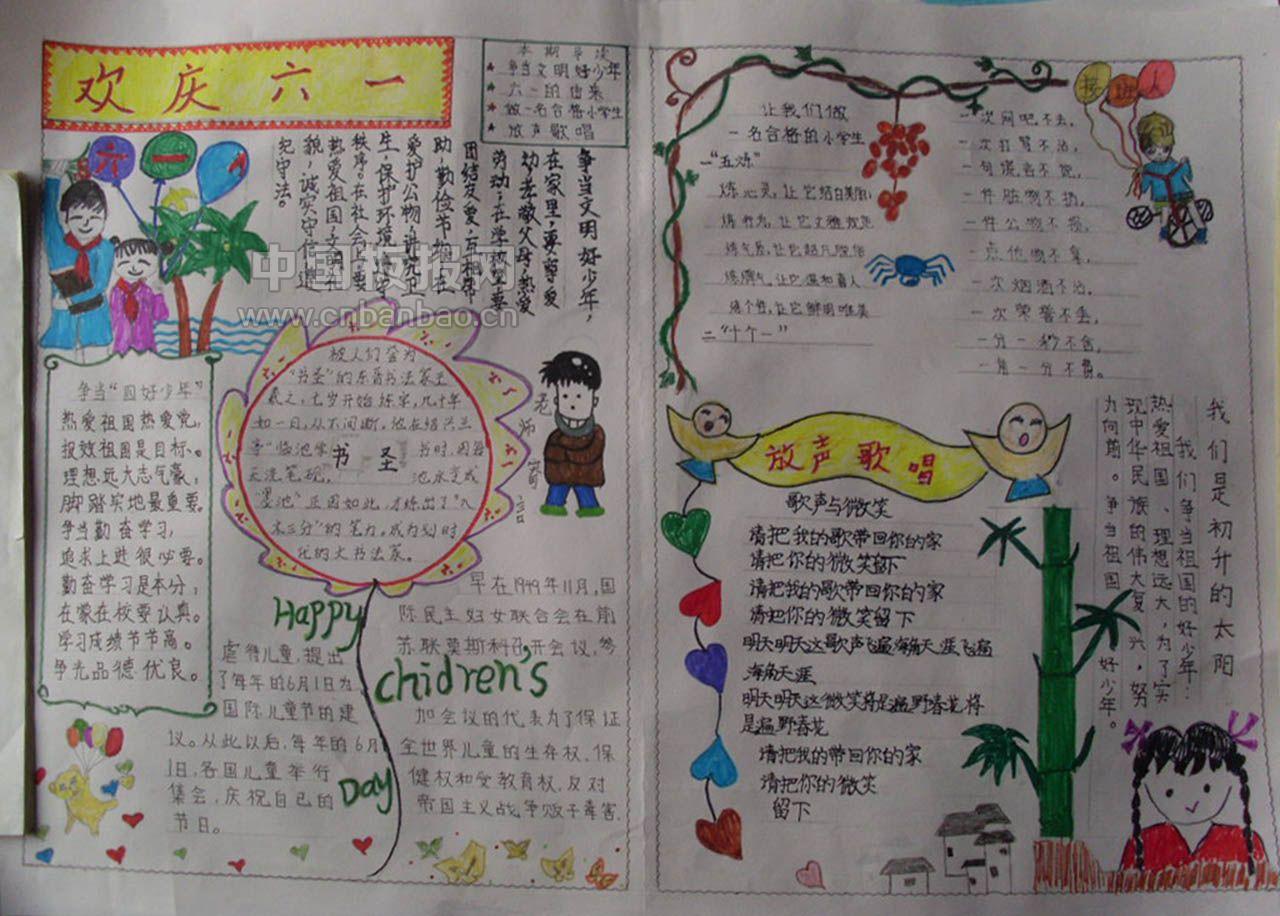 欢庆六一
本期导读
争当文明好少年
六一的由来
做一名合格小学生
放声歌唱
六一
争当文明好少年，
在家里，要尊爱
幼，孝敬父母，热爱
劳动；在学校里要
团结友爱，互相帮
助，勤俭节约，在
爱护公物，讲究卫
生，保护环境，遵守
秩序。在社会上要
热爱祖国，文明礼
貌，诚实守信，遵
纪守法。
中国板报网
www.cnbanbao.cn
争当“四好少年”
热爱祖国热爱党，
报效祖国是目标、。
理想远大志气豪，
脚踏实地最重要。
争当勤奋学习，
追求上进很必要。
勤奋学习是本分，
在家在校要认真。
学习成绩节节高。
争光品德优良。
被人们誉为
“书圣”的东晋书法家王
羲之，七岁开始练字，几十年
如一日，从不间断。他在绍兴兰
亭“临池学
书时，因每
天洗笔砚，
池水变成
“墨池”正因如此，才练出了“入
木三分”的笔力，成为划时
代的大书法家。
书圣
老师寄言
早在1949年11月，国
际民主妇女联合会在前
苏联莫斯科召开会议，参
加会议的代表为了保证
全世界儿童的生存权、保
健权和受教育权，反对
帝国主义战争贩子毒害
虐待儿童，提出
了每年的6月1日为
国际儿童节的建
议。从此以后，每年的6月
1日，各国儿童举行
集会，庆祝自己的
节日。
Happy
chidren's
Day
让我们做
一名合格的小学生
一“五炼”
炼心灵，让它结白美丽；
炼行为，让它文雅规范
炼气质，让它超凡脱俗
炼脾气，让它温和喜人
炼个性，让它鲜明唯美
二“十个一”
一次网吧不去，
一次打骂不沾，
一句谎言不说，
一件脏物不扔，
一件公物不损，
一点他物不拿，
一次烟酒不沾，
一次荣誉不丢，
一分一秒不舍，
一角一分不费。
接班人
放声歌唱
歌声与微笑
请把我的歌带回你的家
请把你的微笑留下
请把我的歌带回你的家
请把你的微笑留下
明天明天这歌声飞遍海角天涯飞遍
海角天涯
明天明天这微笑将是遍野春花将
是遍野春花
请把我的带回你的家
请把你的微笑
留下
我们是初升的太阳
我们争当祖国的好少年：
热爱祖国、理想远大，为了实
现中华民族的伟大复兴，努
力向前。争当祖国
好少年。